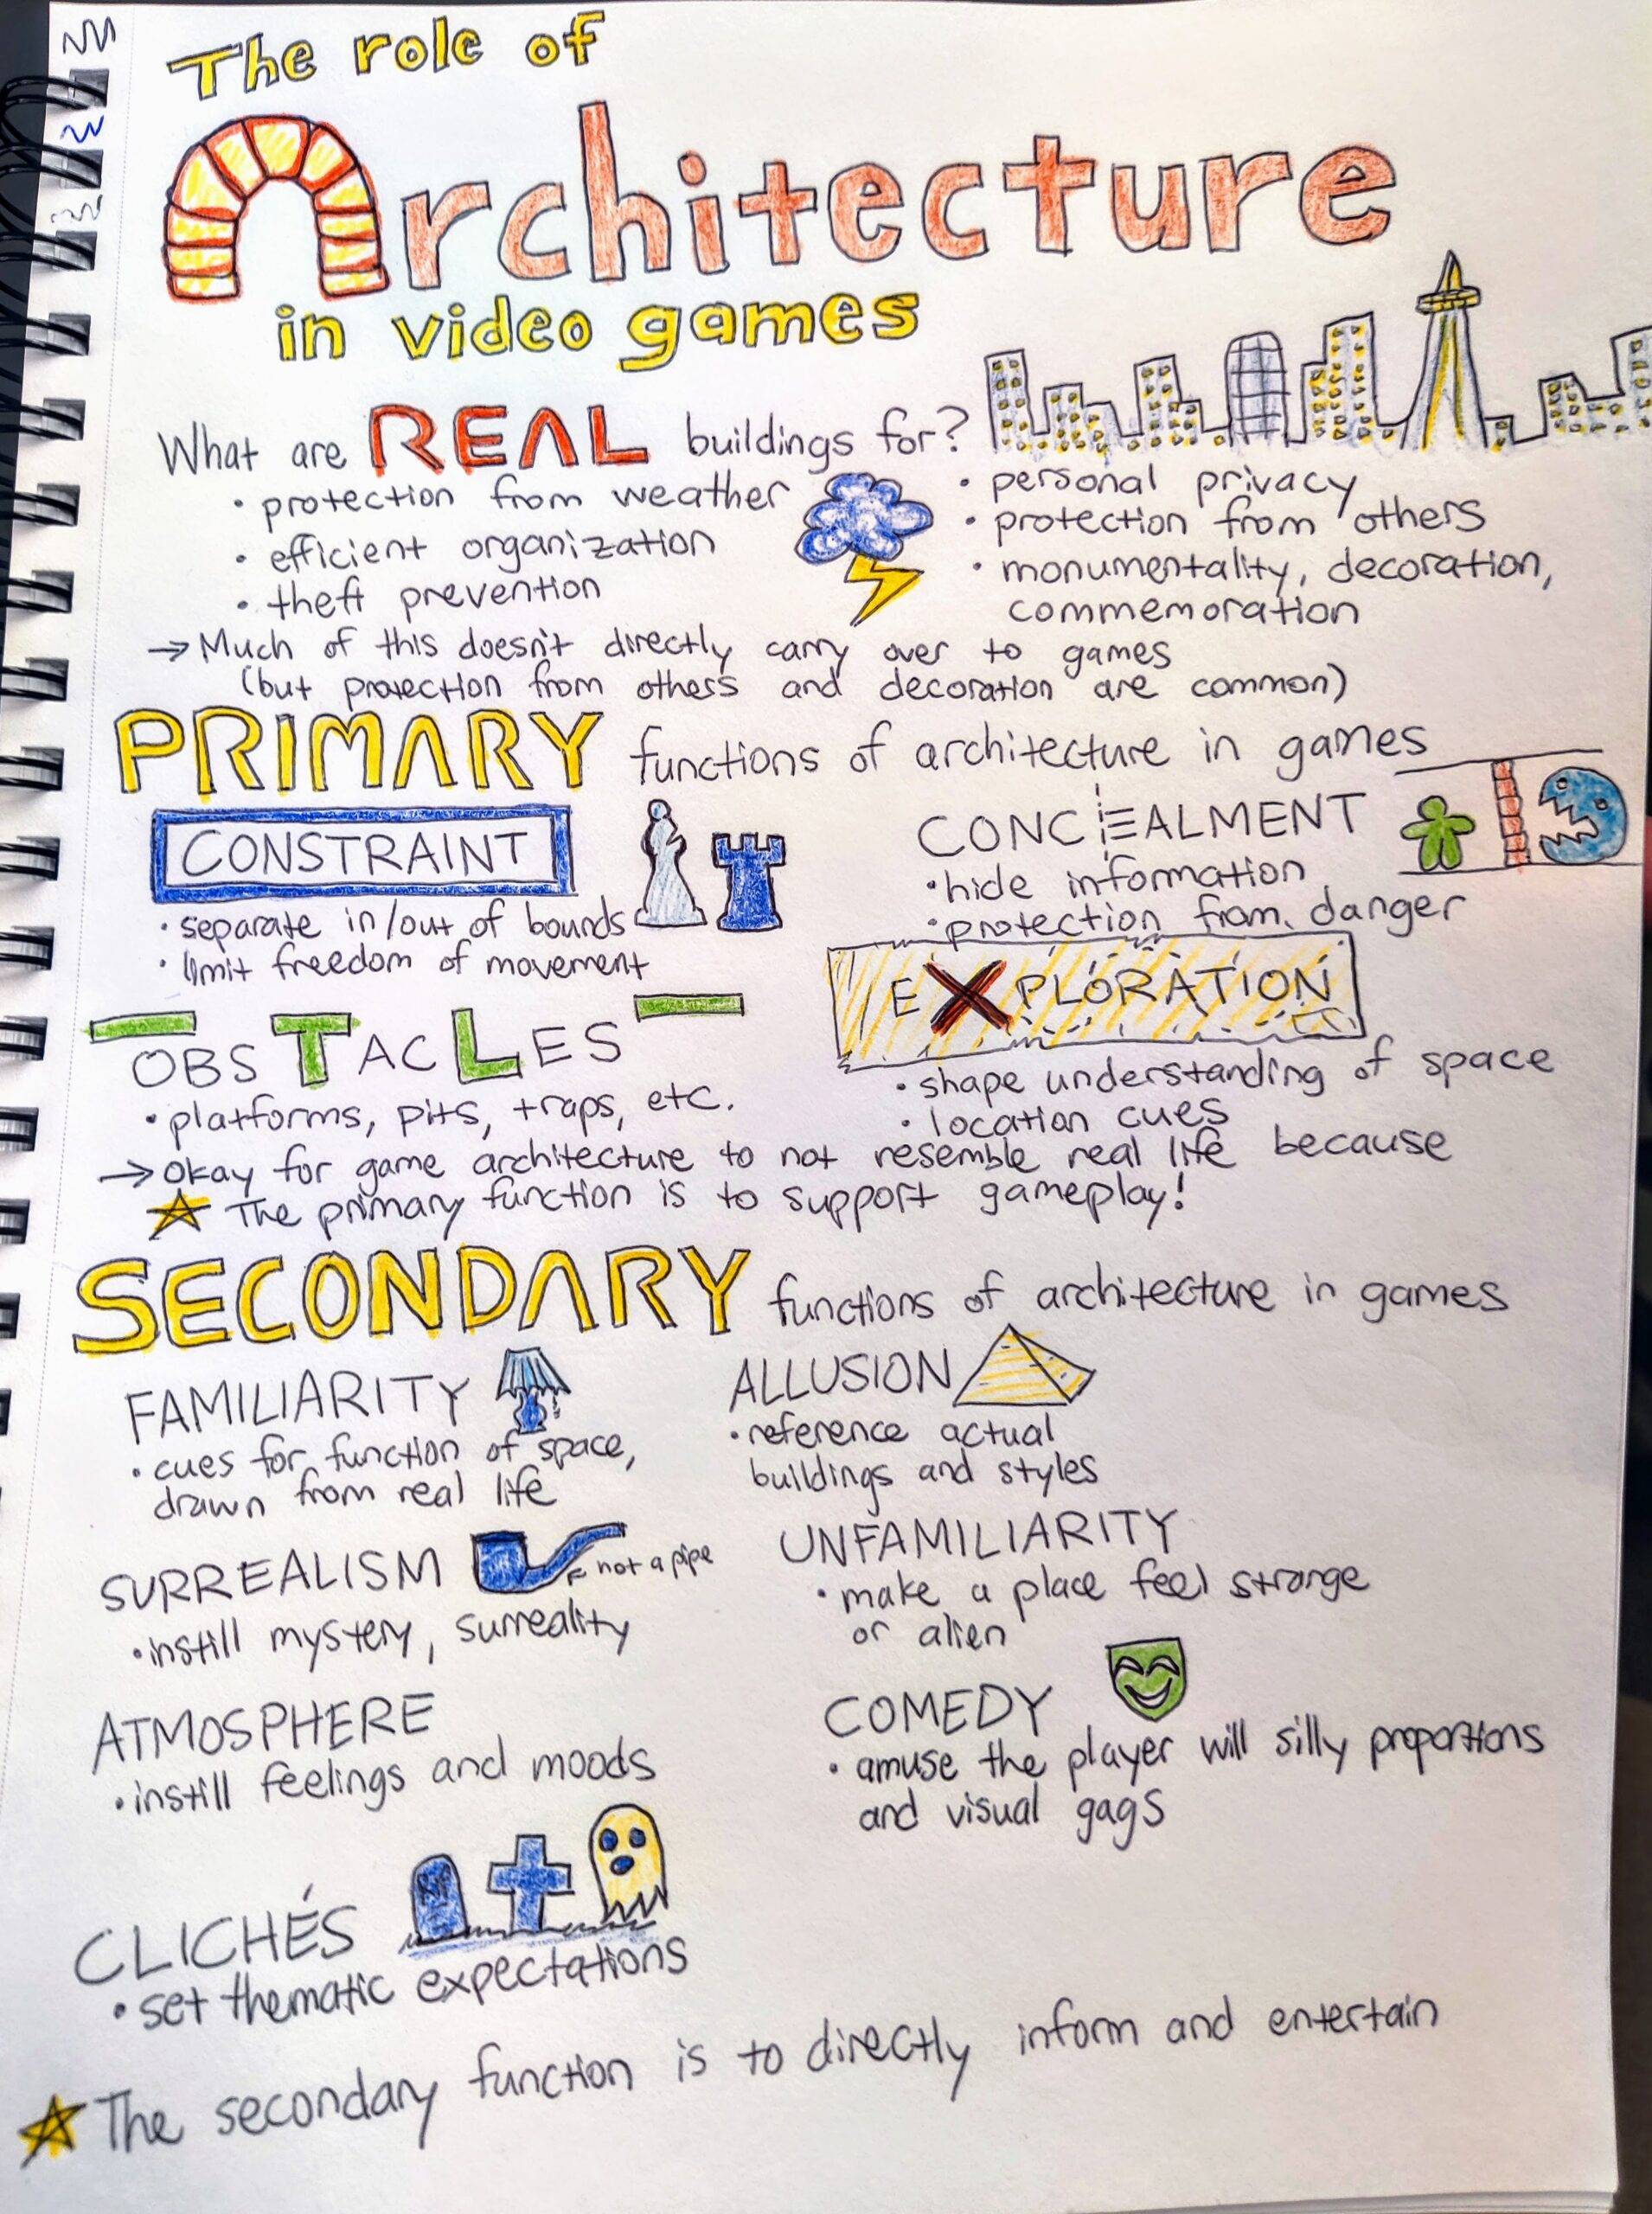 The role of
Architecture
in video games
What are REAL buildings for?
• protection from weather
• efficient organization
• theft prevention
• personal privacy
• protection from others
• monumentality, decoration,
commemoration
→ Much of this doesn't directly carry over to games
(but protection from others and decoration are common)
PRIMARY functions of architecture in games
CONSTRAINT
• separate in/out of bounds
• limit freedom of movement
CONCEALMENT
• hide information
• protection from danger
OBSTACLES
• platforms, pits, traps, etc.
EXPLORATION
• shape understanding of space
• location cues
→ Okay for game architecture to not resemble real life because
The primary function is to support gameplay!
SECONDARY functions of architecture in games
FAMILIARITY
• cues for function of space,
drawn from real life
ALLUSION
• reference actual
buildings and styles
SURREALISM
not a pipe
• instill mystery, surreality
UNFAMILIARITY
• make a place feel strange
or alien
ATMOSPHERE
• instill feelings and moods
COMEDY
• amuse the player will silly proportions
and visual gags
CLICHÉS
RIP
• set thematic expectations
The secondary function is to directly inform and entertain